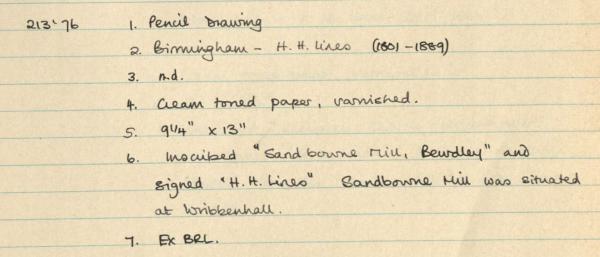 213'76 1. Pencil Drawing
2. Birmingham - H.H. Lines (1801-1889)
3. n.d.
4. Cream toned paper, varnished.
5. 9¼" x 13"
6. Inscribed "Sandbourne Mill, Bewdley" and
signed "H.H. Lines" Sandbourne Mill was situated
at Wribbenhall.
7. Ex BRL.